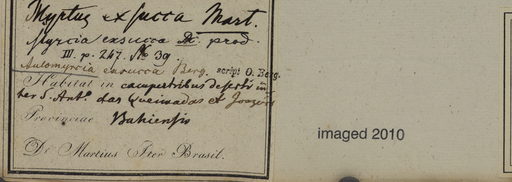 Myrtus exsucca Mart.
Myrcia exsucca DC. prod.
III. p. 247. № 39.
Automyrcia exsucca Berg. script O. Berg.
Habitat in campestribus deserti in
ter S. Ant.º das Queimadas et Joazeiro
Provinciae Bahiensis
Dr Martius Iter Brasil.
imaged 2010